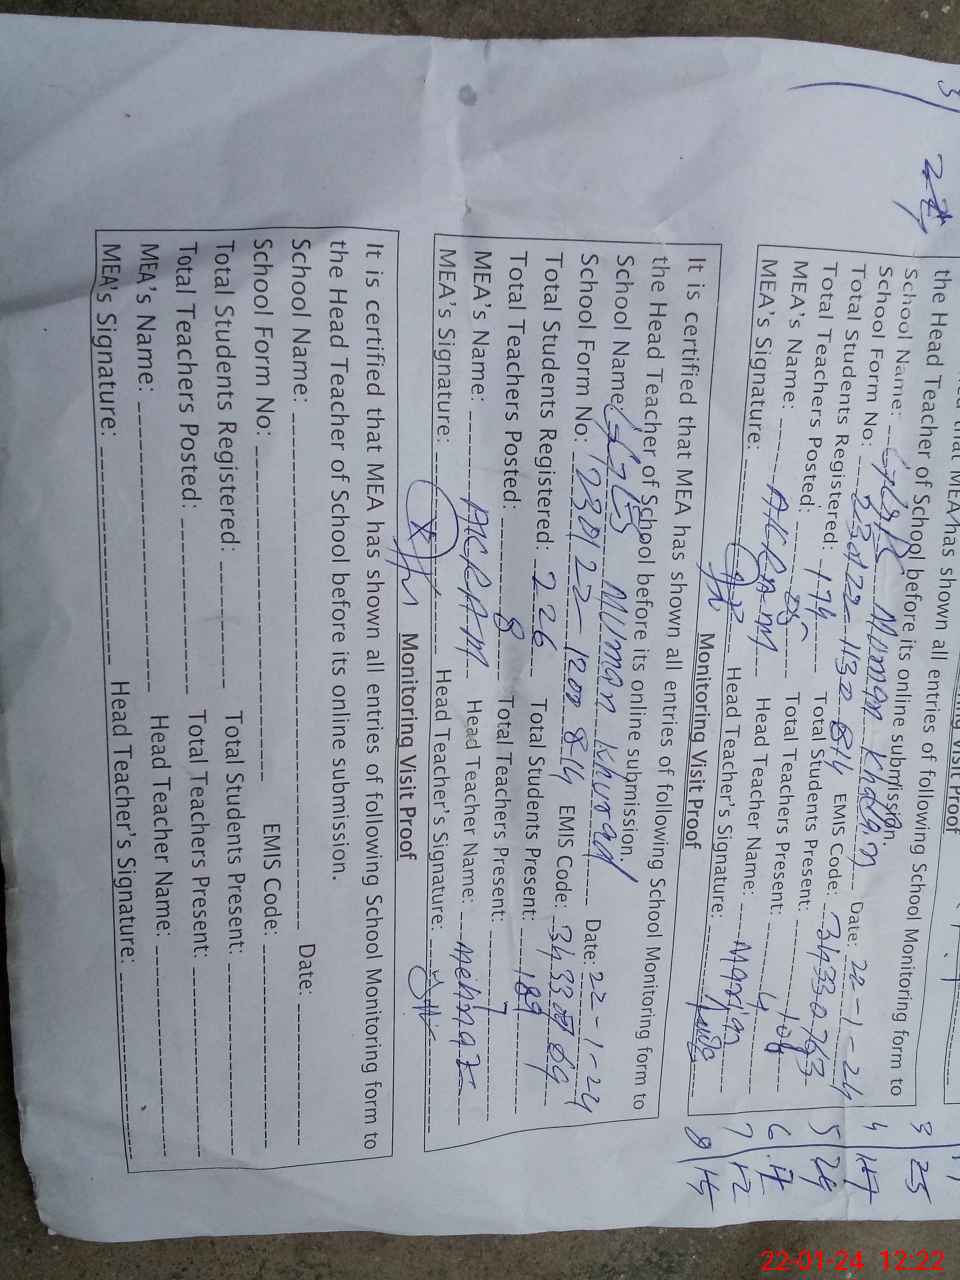 the Head Teacher of School before its online submission.
School Name: Muman Khalan Date: 22-1-24
School Form No: 230122-1130 814 EMIS Code: 34330763
Total Students Registered: 174 Total Students Present: 108
Total Teachers Posted: 05 Total Teachers Present: 4
MEA's Name: AKRAM Head Teacher Name: Marian
MEA's Signature: Head Teacher's Signature:
Monitoring Visit Proof
It is certified that MEA has shown all entries of following School Monitoring form to
the Head Teacher of School before its online submission.
School Name: Muman Khurad Date: 22-1-24
School Form No: 230122-1200 814 EMIS Code: 34330769
Total Students Registered: 226 Total Students Present: 189
Total Teachers Posted: 8 Total Teachers Present: 7
MEA's Name: AKRAM Head Teacher Name: Mehnaz
MEA's Signature: Head Teacher's Signature:
Monitoring Visit Proof
It is certified that MEA has shown all entries of following School Monitoring form to
the Head Teacher of School before its online submission.
School Name: Date:
School Form No: EMIS Code:
Total Students Registered: Total Students Present:
Total Teachers Posted: Total Teachers Present:
MEA's Name: Head Teacher Name:
MEA's Signature: Head Teacher's Signature:
3 25
4
5 24
6
7 12
8 15
22-01-24 12:22